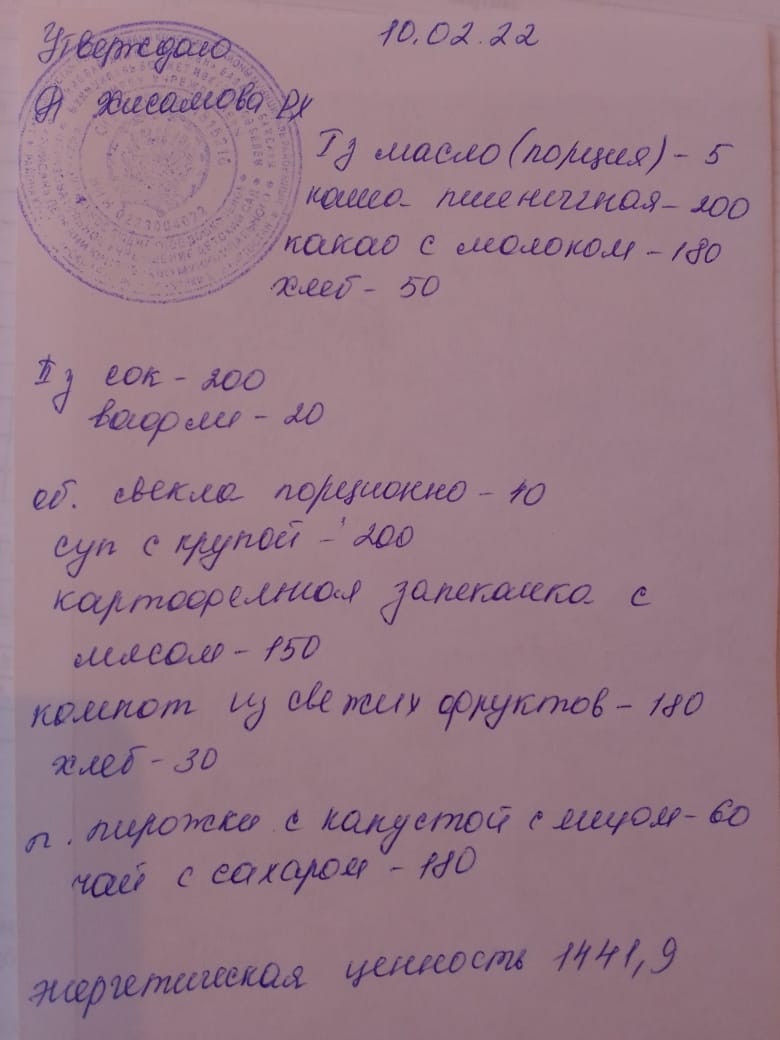 Утверждаю 10.02.22
Хисамова РХ
I з масло (порция) - 5
каша пшеничная - 200
какао с молоком - 180
хлеб - 50
II з сок - 200
вафли - 20
об. свекла порционно - 40
суп с крупой - 200
картофельная запеканка с
мясом - 150
компот из свежих фруктов - 180
хлеб - 30
п. пирожки с капустой с яйцом - 60
чай с сахаром - 180
энергетическая ценность 1441,9